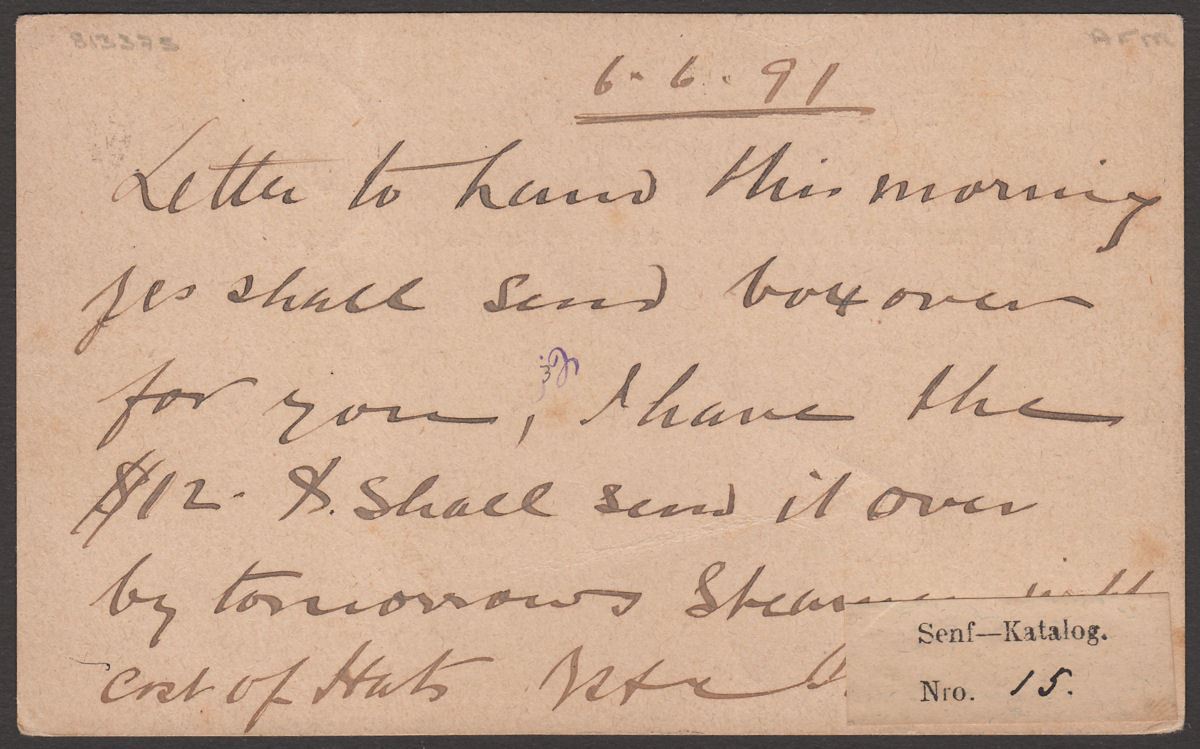 813375
Arm
6.6.91
Letter to hand this morning
yes shall send box over
for you, I have the
$12. & Shall send it over
by tomorrows Steamer with
cost of Hats
Senf—Katalog.
Nro. 15.